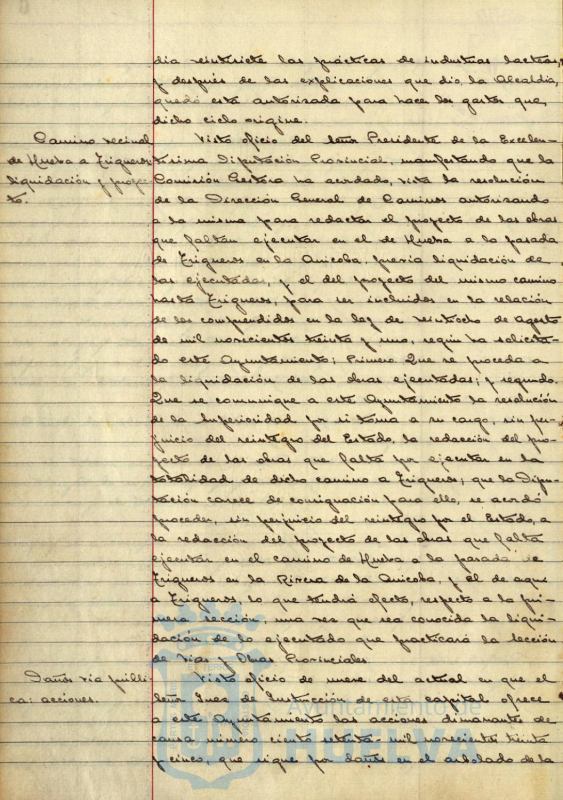 dia veintisiete las prácticas de industrias lacteas,
y después de las explicaciones que dio la Alcaldia,
quedó esta autorizada para hacer los gastos que
dicho ciclo origine.
Camino vecinal
de Huelva a Trigueros:
liquidación y proyec-
to.
Visto oficio del Señor Presidente de la Excelen-
tisima Diputación Provincial, manifestando que la
Comisión Gestora ha acordado, vista la resolución
de la Dirección General de Caminos autorizando
a la misma para redactar el proyecto de las obras
que faltan ejecutar en el de Huelva a la pasada
de Trigueros en la Anicoba, previa liquidación de
las ejecutadas, y el del proyecto del mismo camino
hasta Trigueros, para ser incluidos en la relación
de los comprendidos en la ley de veintiocho de Agosto
de mil novecientos treinta y uno, según ha solicita-
do este Ayuntamiento; Primero Que se proceda a
la liquidación de las obras ejecutadas; y segundo.
Que se comunique a este Ayuntamiento la resolución
de la Superioridad por si toma a su cargo, sin per-
juicio del reintegro del Estado, la redacción del pro-
yecto de las obras que falta por ejecutar en la
totalidad de dicho camino a Trigueros, que la Dipu-
tación carece de consignación para ello, se acordó
proceder, sin perjuicio del reintegro por el Estado, a
la redacción del proyecto de las obras que falta
ejecutar en el camino de Huelva a la pasada de
Trigueros en la Rivera de la Anicoba, y el de aqui
a Trigueros, lo que tendrá efecto, respecto a la pri-
mera sección, una vez que sea conocida la liqui-
dación de lo ejecutado que practicará la Sección
de Vias y Obras Provinciales
Daños via públi-
ca: acciones.
Visto oficio de nueve del actual en que el
Señor Juez de Instrucción de esta capital ofrece
a este Ayuntamiento las acciones dimanantes de
causa número ciento setenta - mil novecientos treinta
y cinco, que sigue por daños en el arbolado de la
Ayuntamiento de
HUELVA